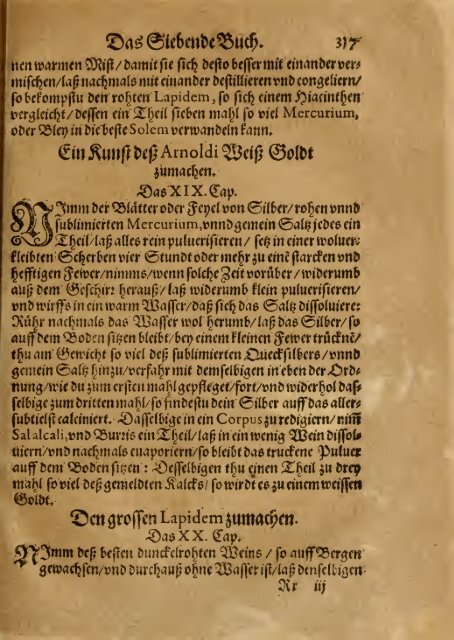 Das Siebende Buch. 317
nen warmen Mist/ damit sie sich desto besser mit einander ver⸗
mischen/ laß nachmals mit einander destillieren vnd congeliern/
so bekompstu den rohten Lapidem, so sich einem Hiacinthen
vergleicht/ dessen ein Theil sieben mahl so viel Mercurium,
oder Bley in die beste Solem verwandeln kann.
Ein Kunst deß Arnoldi Weiß Goldt
zumachen.
Das XIX. Cap.
NImm der Blätter oder Feyel von Silber/ rohen vnnd
sublimierten Mercurium, vnnd gemein Saltz jedes ein
Theil/ laß alles rein puluerisieren/ setz in einer woluer⸗
kleibten Scherben vier Stundt oder mehr zu eine starcken vnd
hefftigen Fewer/ nimms/ wenn solche Zeit vorüber/ widerumb
auß dem Geschirr herauß/ laß widerumb klein puluerisieren/
vnd wirffs in ein warm Wasser/ daß sich das Saltz dissoluiere:
Rühr nachmals das Wasser wol herumb/ laß das Silber/ so
auff dem Boden sitzen bleibt/ bey einem kleinen Fewer trückně/
thu am Gewicht so viel deß sublimierten Quecksilbers/ vnnd
gemein Saltz hinzu/ verfahr mit demselbigen in eben der Ord⸗
nung/ wie du zum ersten mahl gepfleget/ fort/ vnd widerhol das⸗
selbige zum dritten mahl/ so findestu dein Silber auff das aller⸗
subtielst calciniert. Dasselbige in ein Corpus zu redigiern/ nim̃
Sal alcali, vnd Burris ein Theil/ laß in ein wenig Wein dissol⸗
uiern/ vnd nachmals euaporiern/ so bleibt das truckene Puluer
auff dem Boden sitzen: Desselbigen thu einen Theil zu drey
mahl so viel deß gemeldten Kalcks/ so wirdt es zu einem weissen
Goldt.
Den grossen Lapidem zumachen.
Das XX. Cap.
NImm deß besten dunckelrohten Weins/ so auff Bergen
gewachsen/ vnd durchauß ohne Wasser ist/ laß denselbigen
Rr iij